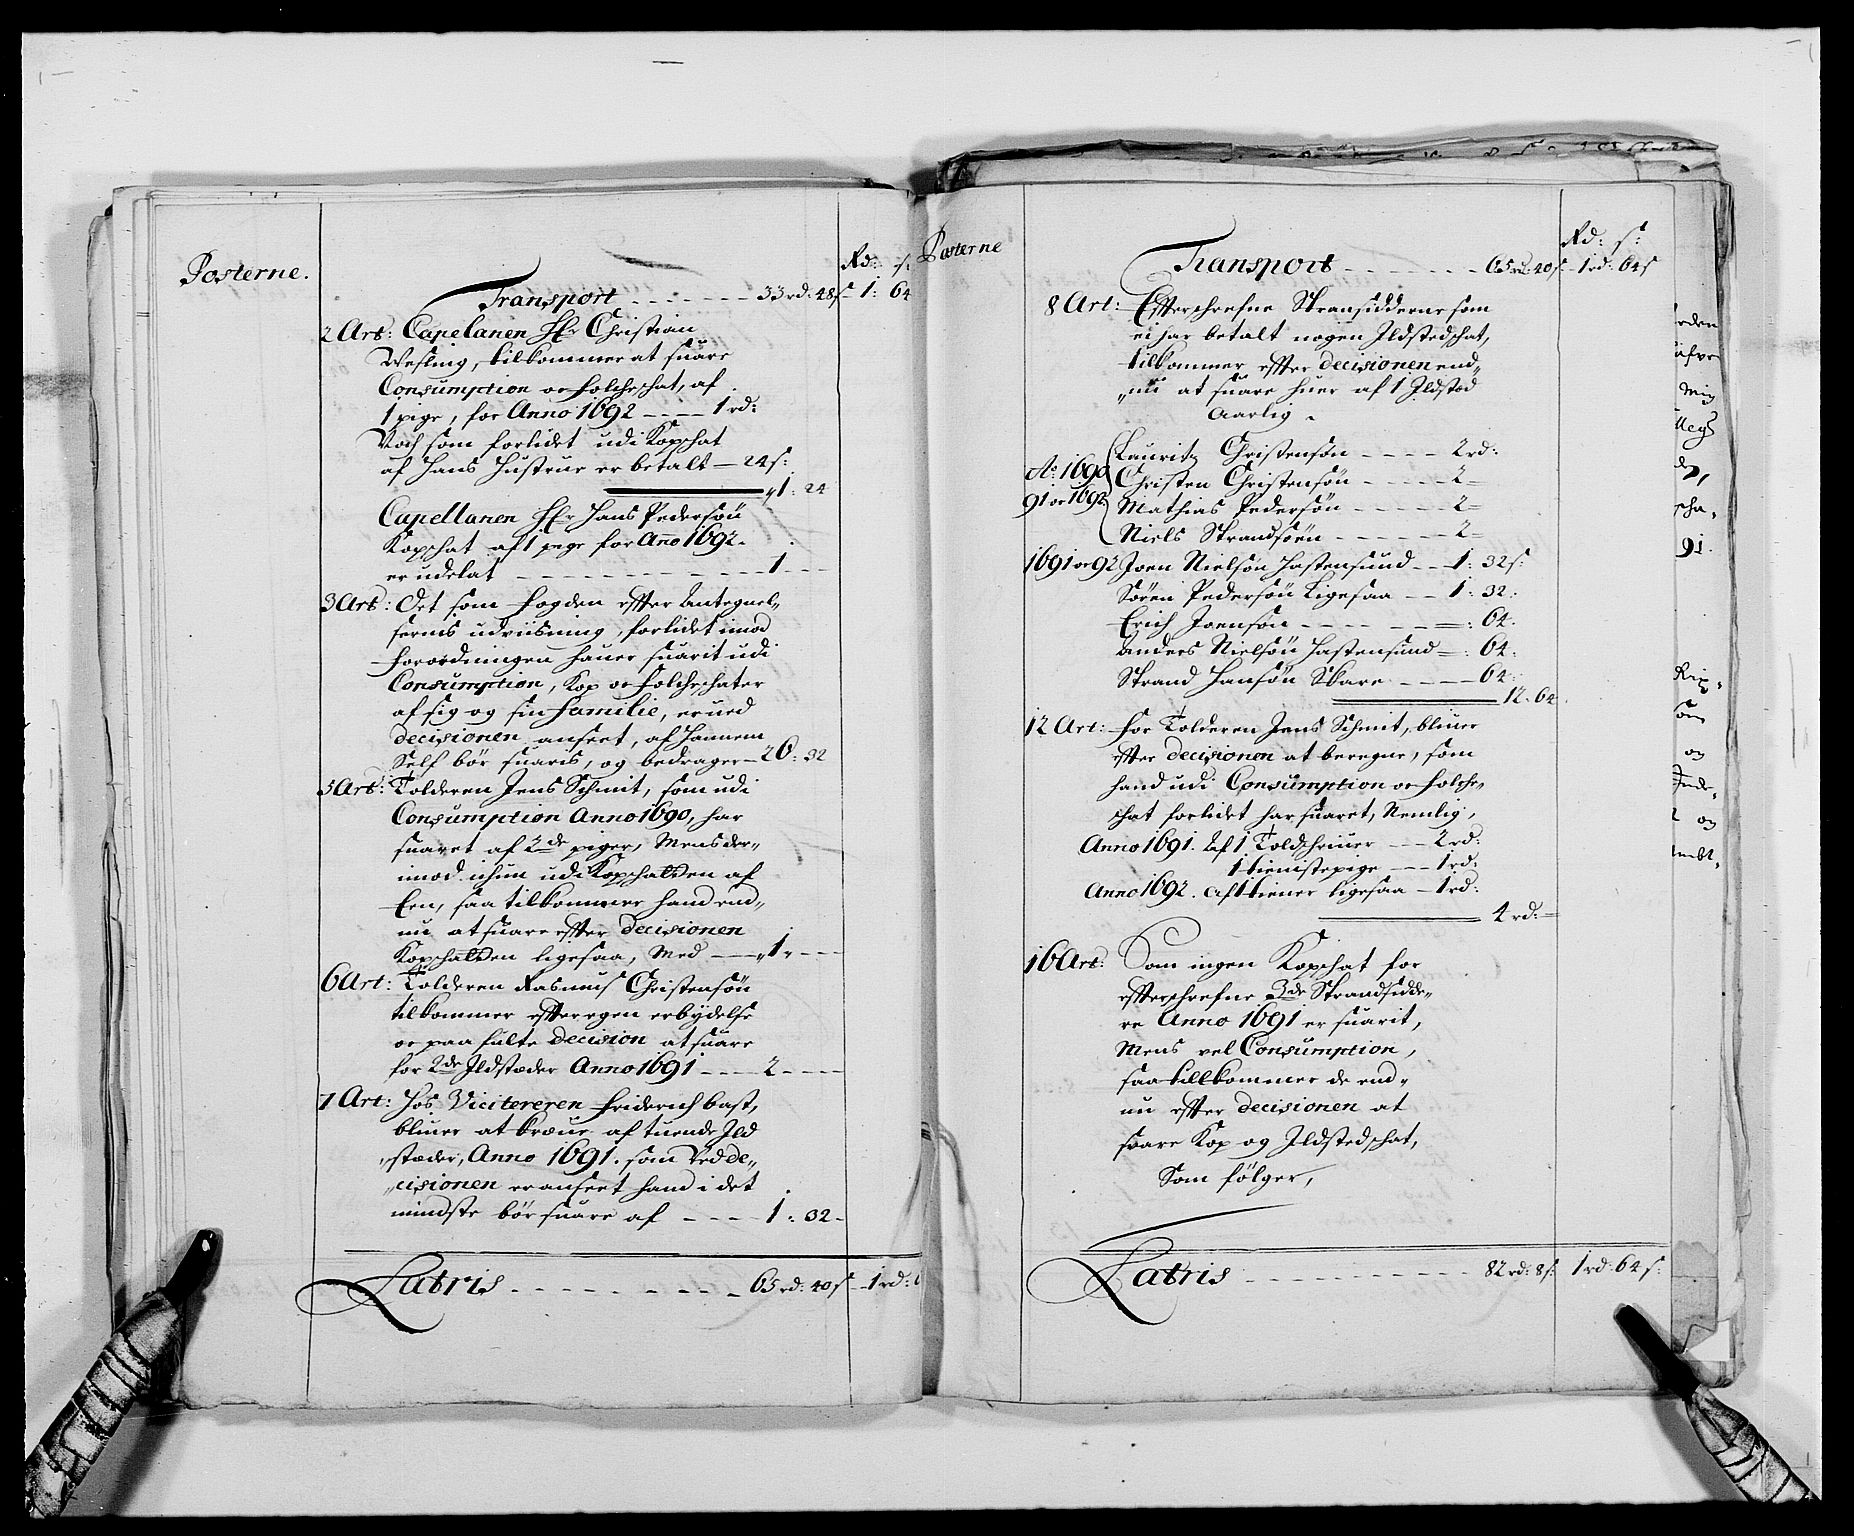 Posterne.
Rd: s:
Transport - - - - - - - 33rd: 48s 1: 64
2 Art: Capelanen Hr Christian
Wesling, tilkommer at suare
Consumption oc folcheschat, af
1 pige, for Anno 1692 - - - - 1 rd:
Noch som forlidet udi Kopschat
af Hans Hustrue er betalt - 24 s:
1: 24
Capellanen Hr Hans Pedersøn
Kopschat af 1 pige for Año 1692.
er udelat - - - - - - - - - 1 - - -
3 Art: Det som fogden effter Antegnel„
sernis udviisning, forlidet imod
forordningen hauer suarit udi
Consumption, Kop oc folcheschater
af sig og sin familie, er ved
decisionen anseet, af hannem
Self bør suaris, og bedrager - 26: 32
5 Art: Tolderen Jens Schmit, som udi
Consumption Anno 1690, har
suaret af 2de piger, Mens der„
imod ichun udi Kopschatten af
Een, saa tilkommer hand end„
nu at suare effter decisionen
Kopschatten ligesaa, Med - - 1 - - -
6 Art: Tolderen Rasmus Christensøn
tilkommer effter egen erbydelse
oc paafulte decision at suare
for 2de Jldstæder Anno 1691 - - - 2 - - -
7 Art: Hos Viciteren Friderich Bast,
bliuer at kræue af tuende Jld
„stæder, Anno 1691. som Ved de„
„cisionen er anseet hand i det
mindste bør suare af - - - - 1: 32 -
Latris - - - - - - - - - 65 rd: 40 s 1 rd: 6
Posterne
Rd: s:
Transport - - - - - - - 65 rd: 40 s 1 rd: 64 s
8 Art: Effterschrefne Stransidderne som
ei har betalt nogen Jldstedschat,
tilkommer effter decisionen end„
„nu at suare huer af 1 Jldsted
Aarlig.
Ao 1690
91 oc 1692
Lauritz Christensøn - - - - 2 rd:
Christen Christensøn - - - - - 2 -
Mathias Pedersøn - - - - - 2 -
Niels Strandsøen - - - - - - 2 -
1691 oc 92 Joen Nielsøn Hastensund - - 1: 32 s:
Søren Pedersøn Ligesaa - - 1: 32:
Erich Joensøn - - - - - - - : 64:
Anders Nielsøn Hastensund - : 64:
Strand Hansøn Skare - - - - 64:
12: 64
12 Art: for Tolderen Jens Schmit, bliuer
effter decisionen at beregne, som
hand udi Consumption oc folche„
schat forlidet har suaret, Nemlig,
Anno 1691. Af 1 Toldschriuer - - - 2 rd:
1 tienistepige - - - 1 rd:
Anno 1692. Af 1 tiener ligesaa - 1 rd:
4 rd: -
16 Art: Som ingen Kopschat for
effterschrefne 3de Strandsidde„
re Anno 1691 er suarit,
Mens vel Consumption,
saa tillkommer de end„
nu effter decisionen at
svare Kop og Jldstedschat,
Som følger,
Latris - - - - - - - - - - 82 rd: 8 s: 1 rd: 64 s: